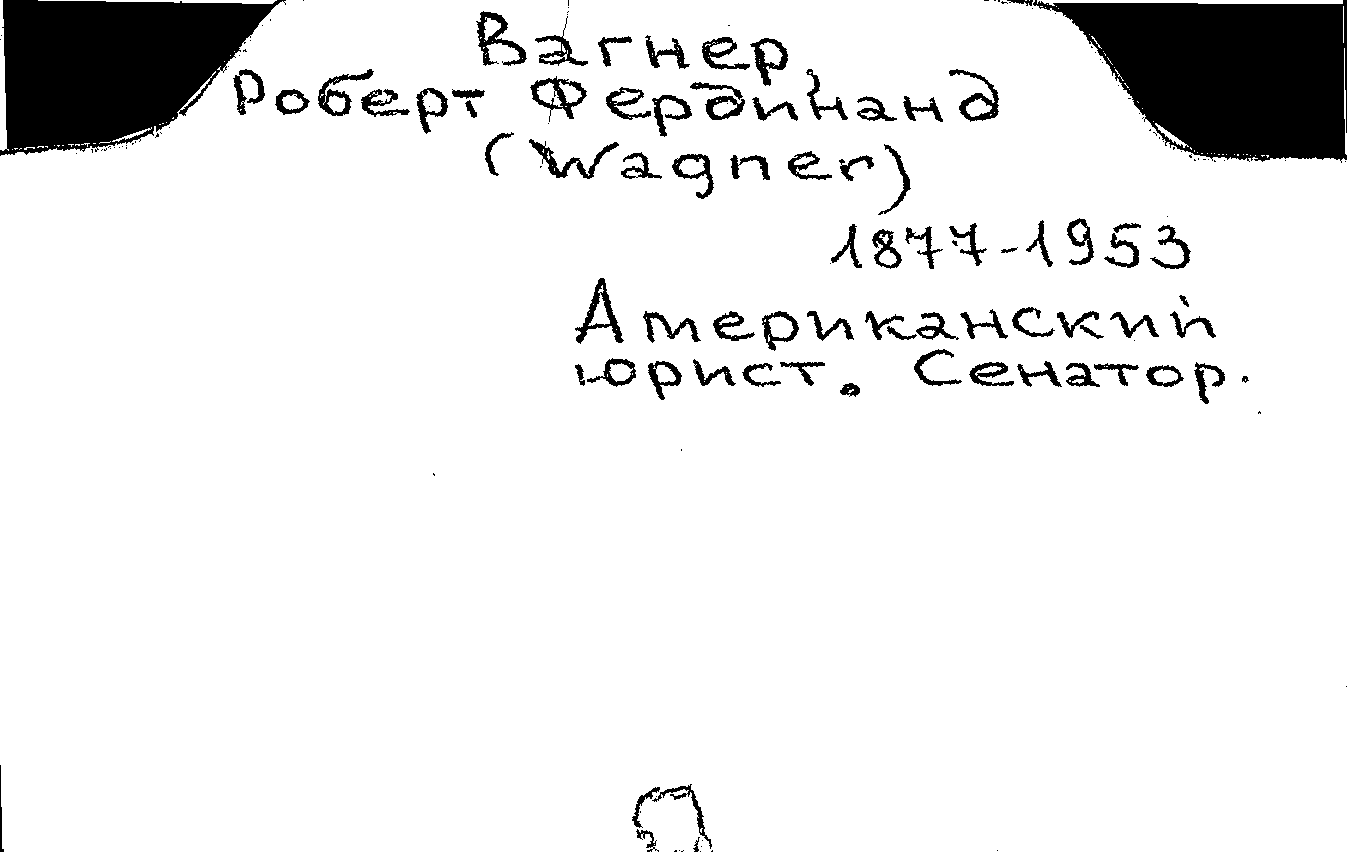 Вагнер,
Роберт Фердинанд
(Wagner)
1877-1953
Американский
юрист. Сенатор.